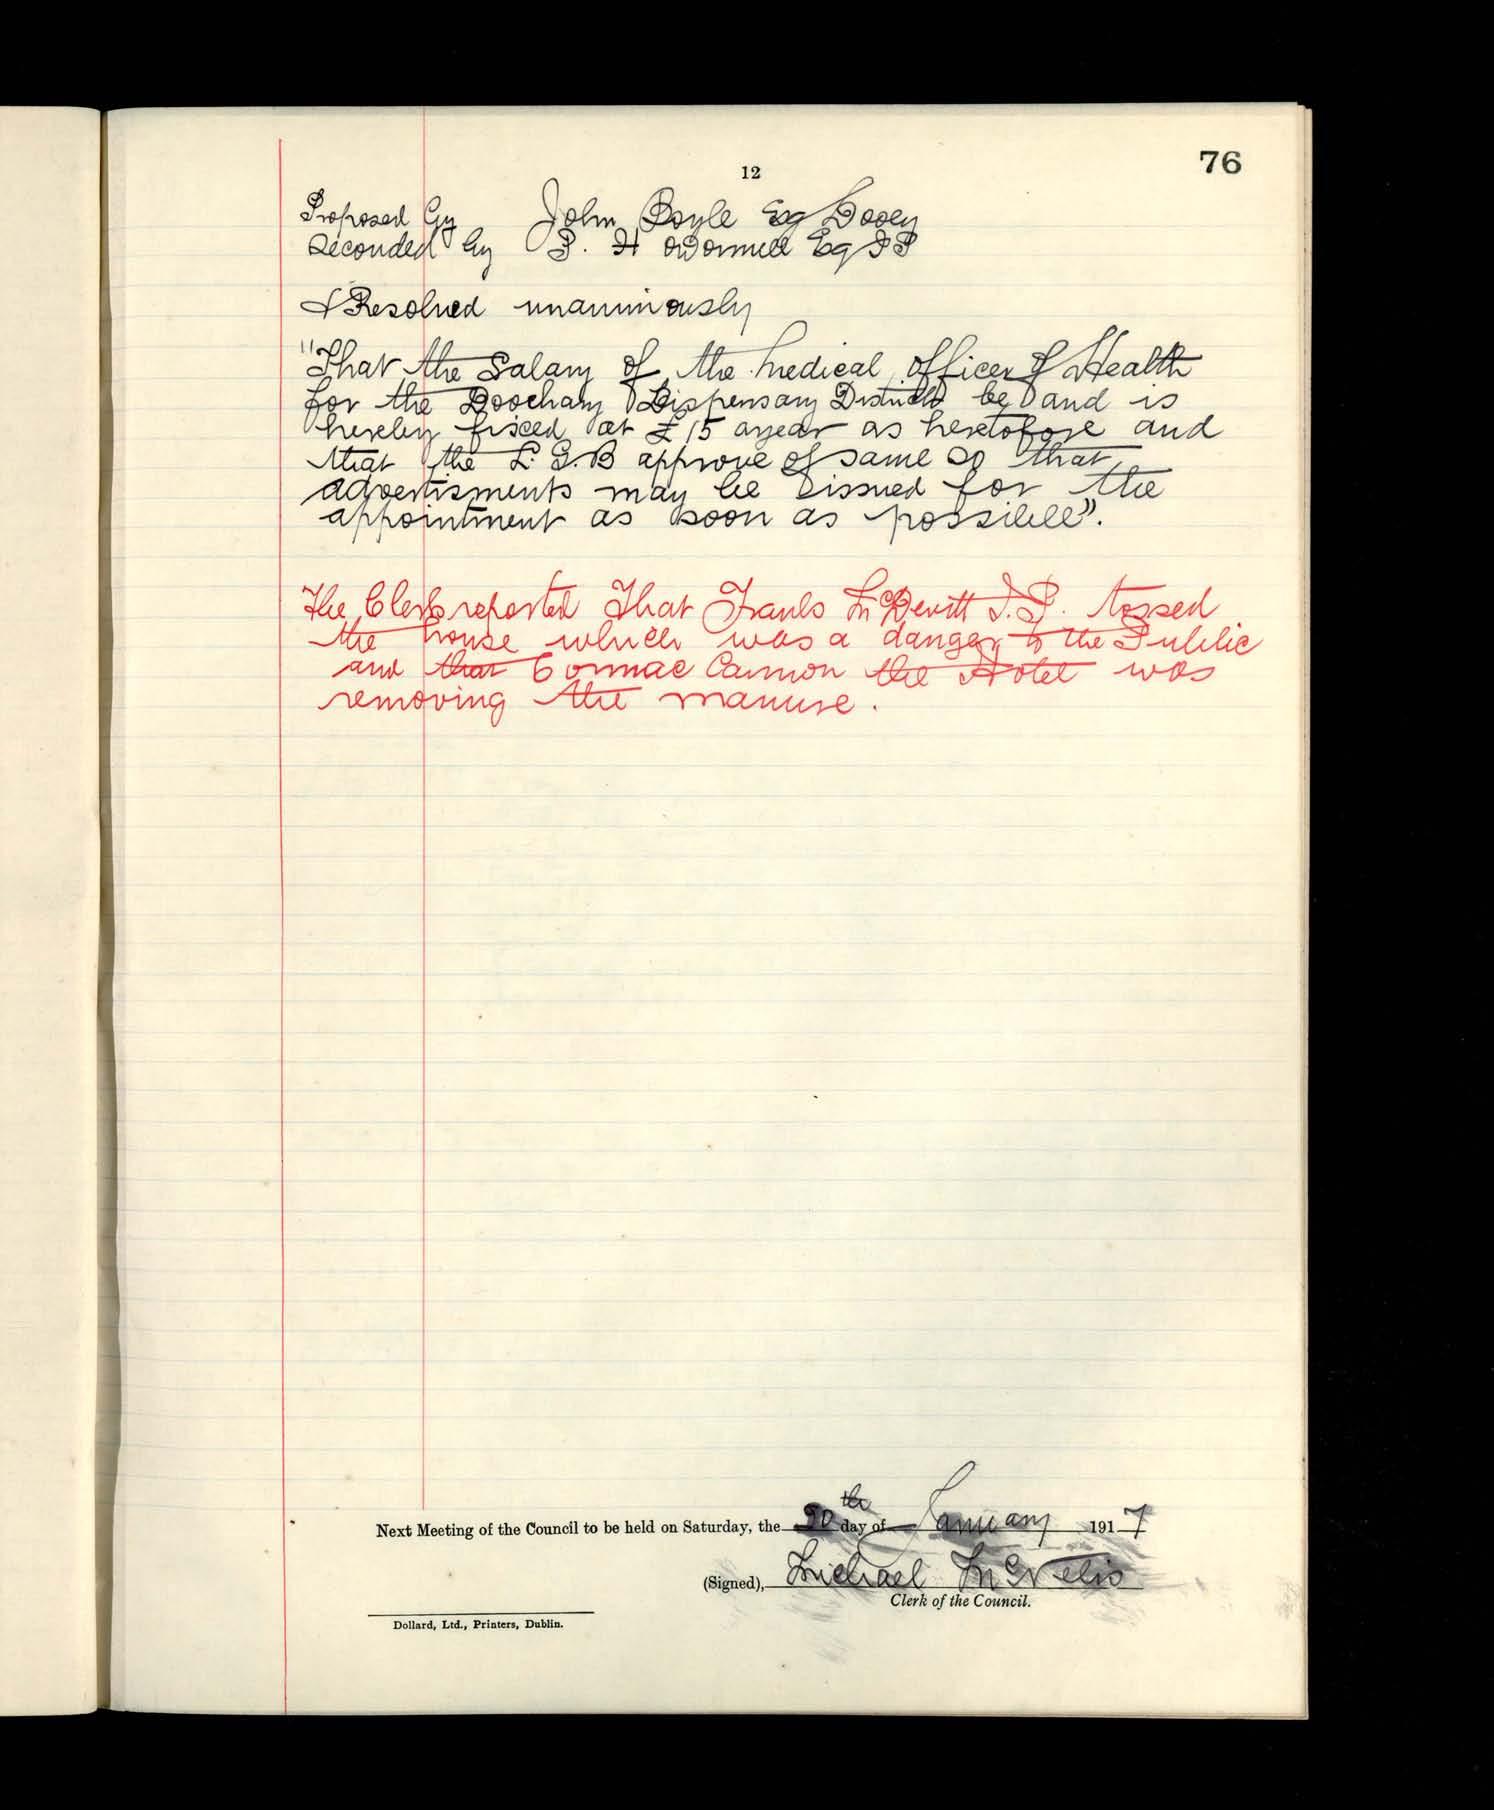 76
12
Proposed by John Boyle Esq Dooey
Seconded by P. H O'Donnell Esq J P
& Resolved unanimously
"That the Salary of the Medical Officer of Health
for the Doochary Dispensary District be and is
hereby fixed at £15 a year as heretofore and
that the L. G. B approve of same so that
advertisments may be issued for the
appointment as soon as possible".
The Clerk reported That McDevitt J. P. tossed
the house which was a danger to the Public
and that Connac Cannon the Hotel was
removing the manure.
Next Meeting of the Council to be held on Saturday, the 20th day of January 1917
(Signed), Michael McNelis
Clerk of the Council.
Dollard, Ltd., Printers, Dublin.